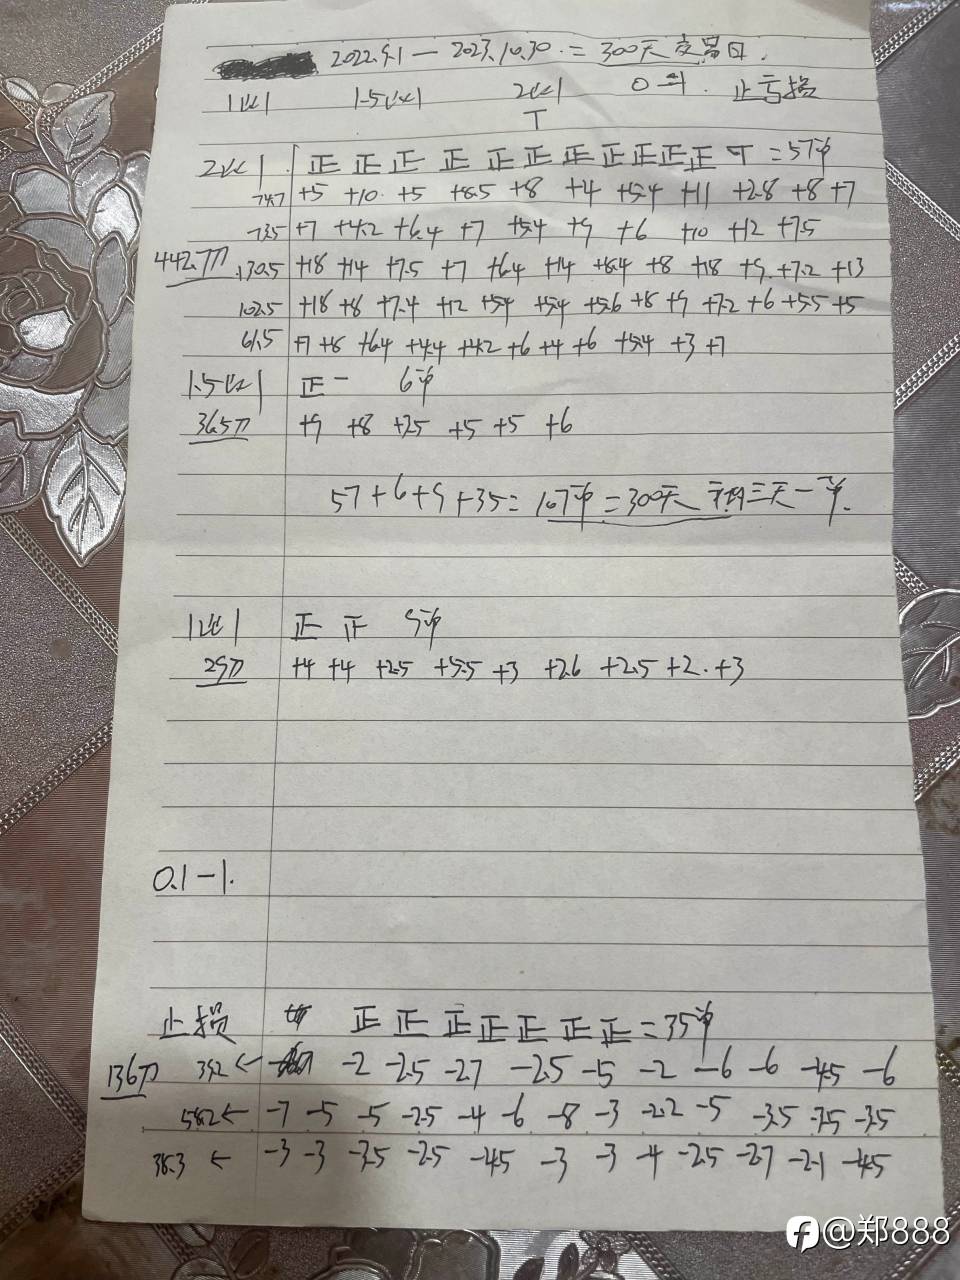 2022.9.1 — 2023.10.30. = 300天交易日.
1比1 1.5比1 2比1 0 止亏损
T
2比1 正 正 正 正 正 正 正 正 正 正 正 T = 57单
74.7 +5 +10 +5 +8.5 +8 +4 +5.4 +11 +2.8 +8 +7
73.5 +7 +4.2 +6.4 +7 +5.4 +9 +6 +10 +12 +7.5
442.7刀 130.5 +18 +14 +7.5 +7 +6.4 +14 +8.4 +8 +18 +9 +7.2 +13
102.5 +18 +8 +7.4 +12 +5.4 +5.4 +5.6 +8 +9 +7.2 +6 +5.5 +5
61.5 +7 +8 +6.4 +4.4 +4.2 +6 +4 +6 +5.4 +3 +7
1.5比1 正一 6单
36.5刀 +9 +8 +2.5 +5 +5 +6
57+6+9+35=107单=300天 三天一单.
1比1 正 正 9单
29刀 +4 +4 +2.5 +5.5 +3 +2.6 +2.5 +2. +3
0.1-1.
止损 正 正 正 正 正 正 正 =35单
136刀 39.2 ← -2 -2.5 -2.7 -2.5 -5 -2 -6 -6 -4.5 -6
58.2 ← -7 -5 -5 -2.5 -4 -6 -8 -3 -2.2 -5 -3.5 -3.5 -3.5
38.3 ← -3 -3 -3.5 -2.5 -4.5 -3 -3 -4 -2.5 -2.7 -2.1 -4.5
@郑888